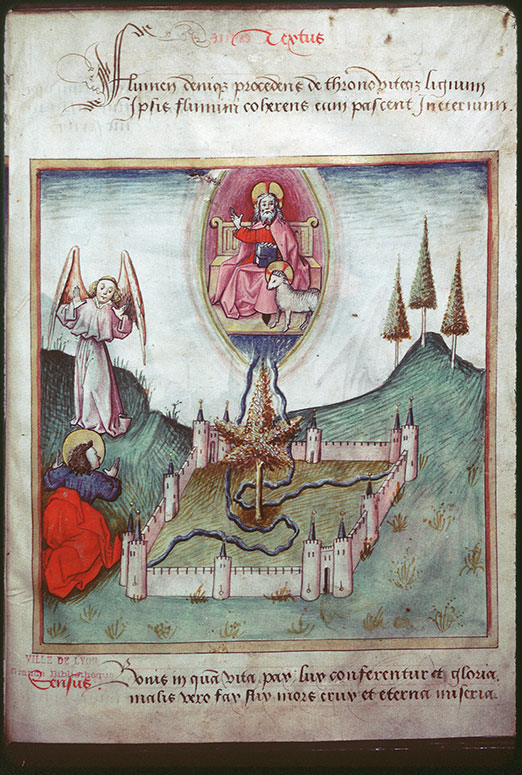 Textus
Flumen deniqz procedens de throno viteqz lignum
Ipsis fluminī coherens eam pascent Ineternum.
VILLE DE LYON
Biblioth
Sensus. Bonis in qua vita, pax lux conferentur et gloria.
malis vero fax fax mors crux et eterna miseria.